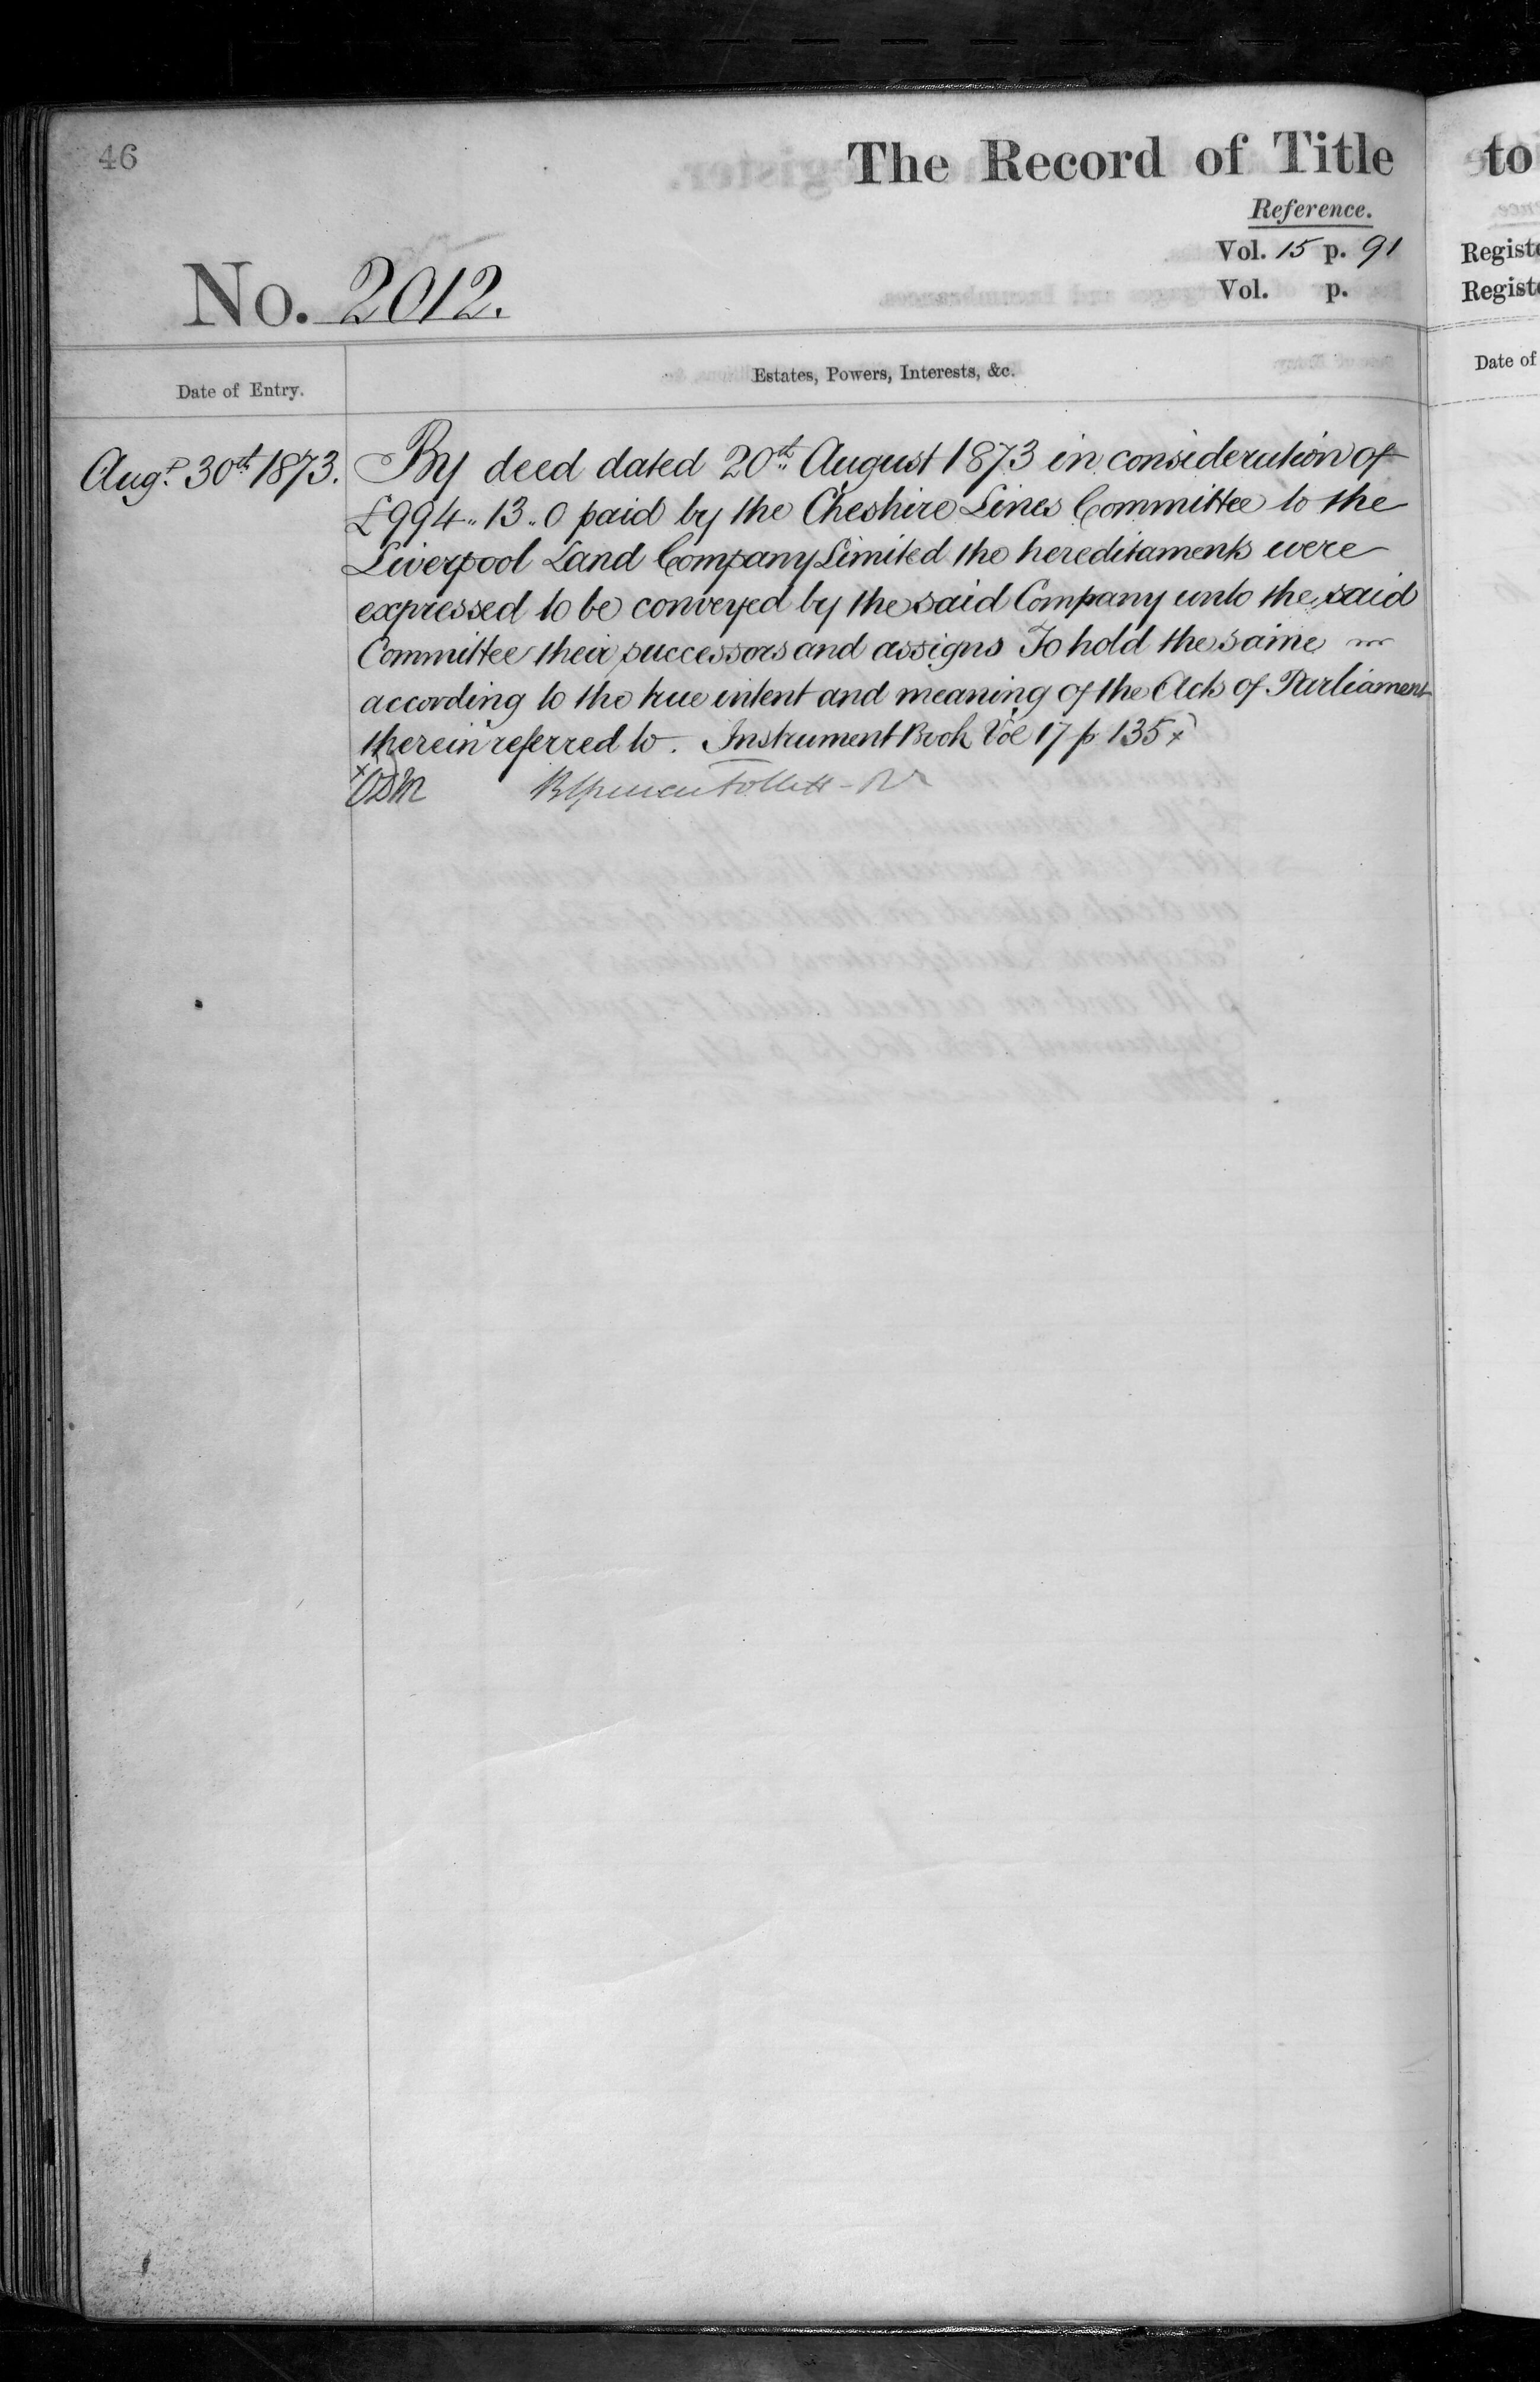 46
The Record of Title
Reference.
Vol. 15 p. 91
Vol. p.
No. 2012.
Date of Entry.
Estates, Powers, Interests, &c.
Augt. 30th 1873.
By deed dated 20th August 1873 in consideration of
£994..13..0 paid by the Cheshire Lines Committee to the
Liverpool Land Company Limited the hereditaments were
expressed to be conveyed by the said Company unto the said
Committee their successors and assigns To hold the same
according to the true intent and meaning of the Acts of Parliament
therein referred to. Instrument Book Vol 17 p 135 x
to
Registe
Registe
Date of